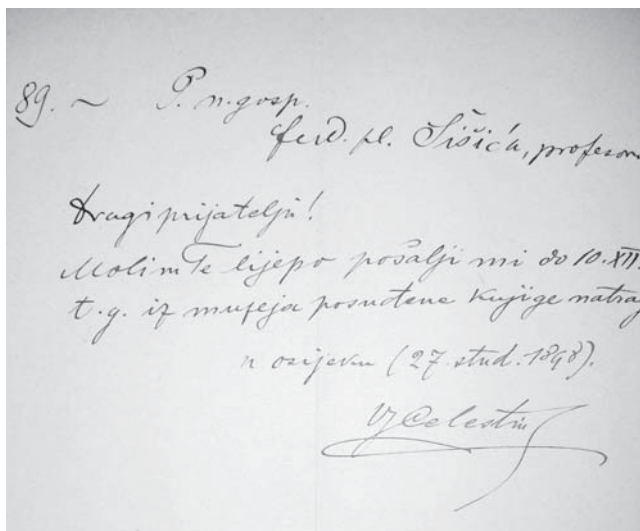 89. ~ P. n. gosp.
Ferd. pl. Šišiću, profesoru
Dragi prijatelju!
Molim Te lijepo pošalji mi do 10. XII.
t. g. iz muzeja posuđene knjige natrag
u osijeku (27. stud. 1898).
Vj Celestin